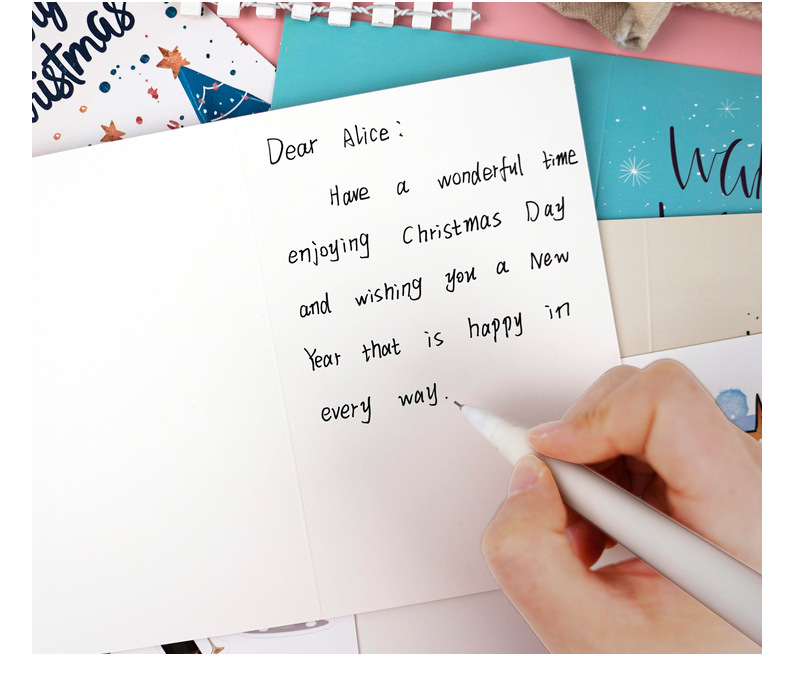 Dear Alice:
Have a wonderful time
enjoying Christmas Day
and wishing you a New
Year that is happy in
every way.